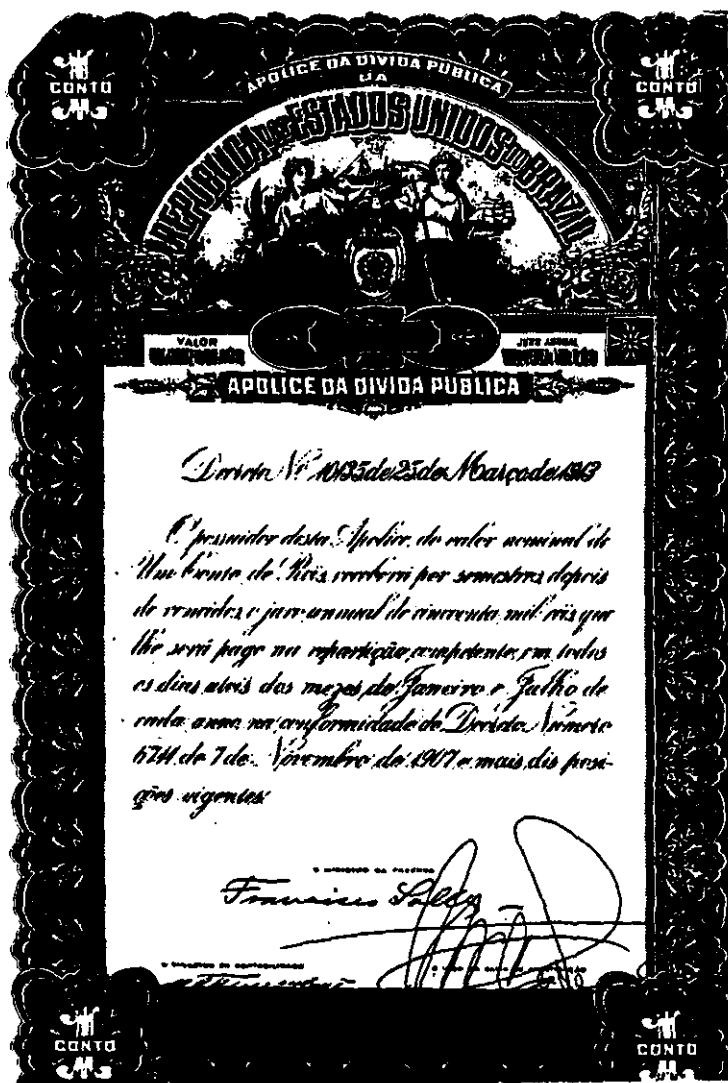 CONTO
CONTO
APOLICE DA DIVIDA PUBLICA
DA
REPUBLICA DOS ESTADOS UNIDOS DO BRAZIL
VALOR
JURO ANNUAL
APOLICE DA DIVIDA PUBLICA
Decreto Nº 10135 de 25 de Março de 1913
O possuidor desta Apolice, do valor nominal de
Um Conto de Reis, receberá por semestres depois
de vencidos, o juro annual de cincoenta mil reis que
lhe será pago na repartição competente, em todos
os dias uteis dos mezes de Janeiro e Julho de
cada anno, na conformidade do Decreto Numero
6711 de 7 de Novembro de 1907 e mais dis posi-
ções vigentes
O MINISTRO DA FAZENDA
Francisco Salles
O DIRECTOR DE CONTABILIDADE
CONTO
CONTO